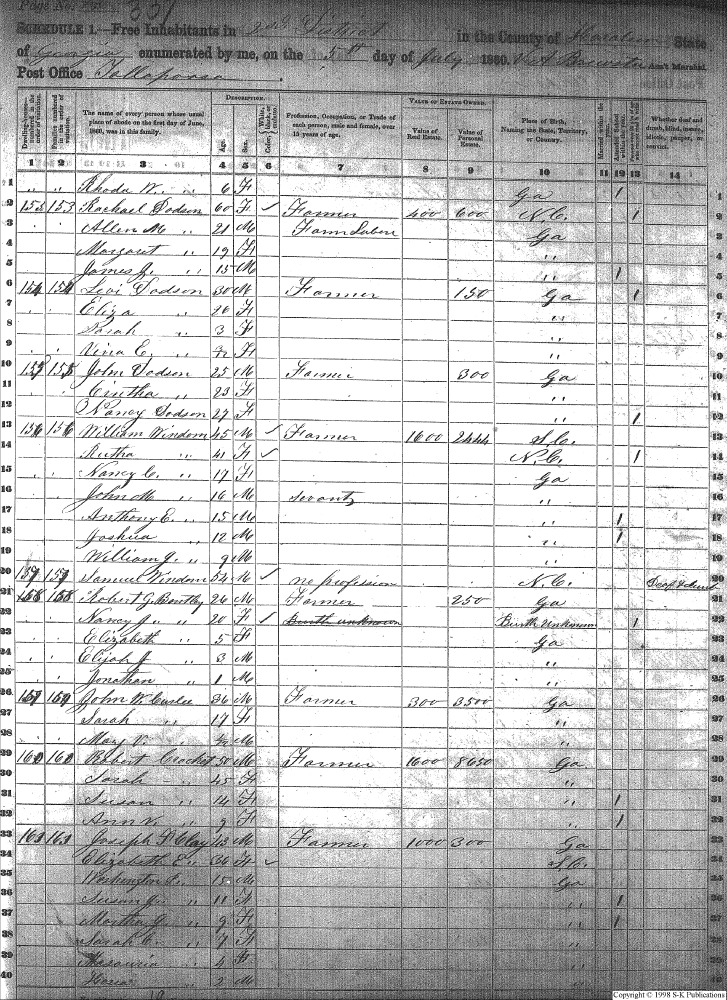 Page No. 331
SCHEDULE 1.—Free Inhabitants in 2nd District in the County of Haralson State
of Georgia enumerated by me, on the 5th day of July 1860. Ass't Marshal.
Post Office Tallapoosa.
Dwelling-houses— numbered in the order of visitation.
Families numbered in the order of visitation.
The name of every person whose usual place of abode on the first day of June, 1860, was in this family.
DESCRIPTION.
Age.
Sex.
Color, White, black, or mulatto.
Profession, Occupation, or Trade of each person, male and female, over 15 years of age.
VALUE OF ESTATE OWNED.
Value of Real Estate.
Value of Personal Estate.
Place of Birth, Naming the State, Territory, or Country.
Married within the year.
Attended School within the year.
Whether deaf and dumb, blind, insane, idiotic, pauper, or convict.
1 2 3 4 5 6 7 8 9 10 11 12 13 14
1 " " Rhoda W. " 6 F Ga /
2 153 153 Rachael Dodson 60 F Farmer 400 600 N.C. /
3 Allen M " 21 M Farm Labor Ga
4 Margaret " 19 F "
5 James J. " 15 M " /
6 154 154 Levi Dodson 30 M Farmer 150 Ga /
7 Eliza " 26 F "
8 Sarah " 3 F "
9 Vina E. " F "
10 155 155 John Dodson 25 M Farmer 300 Ga
11 Cintha " 23 F "
12 Nancy Dodson 27 F " /
13 156 156 William Windom 45 M Farmer 1600 2444 S.C.
14 " 41 F N.C. /
15 Nancy C. " 17 F Ga
16 John M " 16 M Servant "
17 Anthony E. " 15 M " /
18 Joshua " 12 M " /
19 William J. " 9 M "
20 157 157 Samuel Windom 54 M no profession N.C. Deaf & dumb
21 158 158 Robert G. Bentley 26 M Farmer 250 Ga
22 Nancy J. " 20 F Birth unknown Birth Unknown /
23 Elizabeth " 5 F Ga
24 Elijah J " 3 M "
25 Jonathan " 1 M "
26 159 159 John W. 36 M Farmer 300 3500 Ga
27 Sarah " 17 F "
28 Mary V. " "
29 160 160 Robert Crocket 50 M Farmer 1600 8650 Ga
30 Sarah " 45 F "
31 Susan " 14 F " /
32 Ann V. " 9 F " /
33 161 161 Joseph F. Clay 43 M Farmer 1000 300 Ga
34 Elizabeth E. " 36 F S.C.
35 Washington " 15 M Ga
36 Susan J. " 11 F " /
37 Martha J. " 9 F " /
38 Sarah C. " 7 F "
39 Missouria " 4 F "
40 " 2 M "
Copyright © 1998 S-K Publications